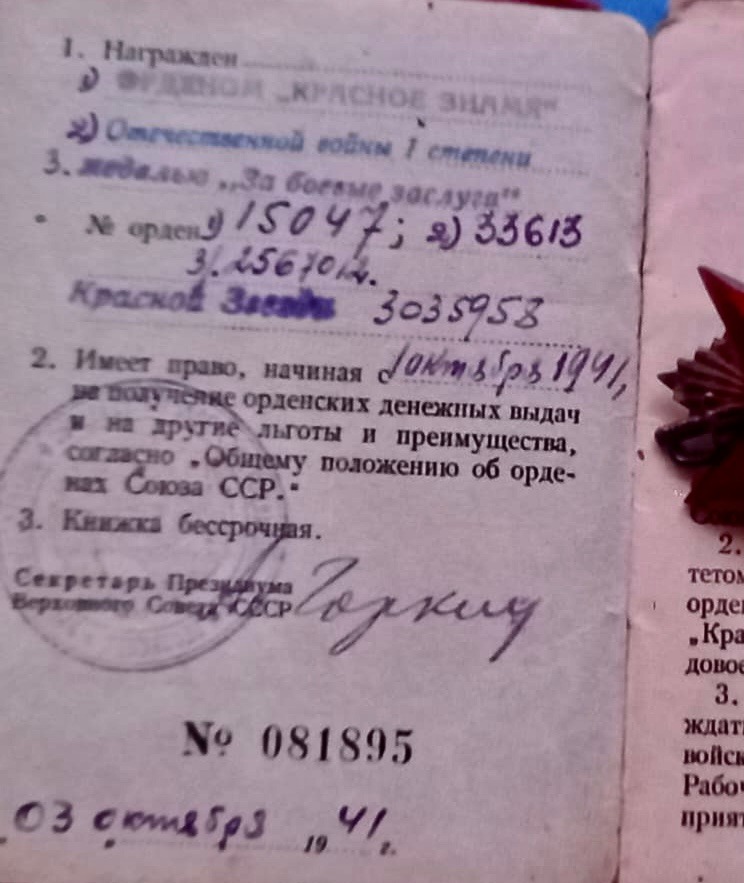 1. Награжден
1) ОРДЕНОМ „КРАСНОЕ ЗНАМЯ"
2) Отечественной войны I степени
3. медалью „За боевые заслуги"
№ орден 1) 15047; 2) 33613
3. 2567012.
Красной Звезды 3035958
2. Имеет право, начиная с 1 октября 1941,
на получение орденских денежных выдач
и на другие льготы и преимущества,
согласно „Общему положению об орде-
нах Союза ССР."
3. Книжка бессрочная.
Секретарь Президиума
Верховного Совета СССР Горкин
№ 081895
03 октября 1941 г.
2.
тетом
орде
„Кра
довое
3.
ждат
войск
Рабоч
прият